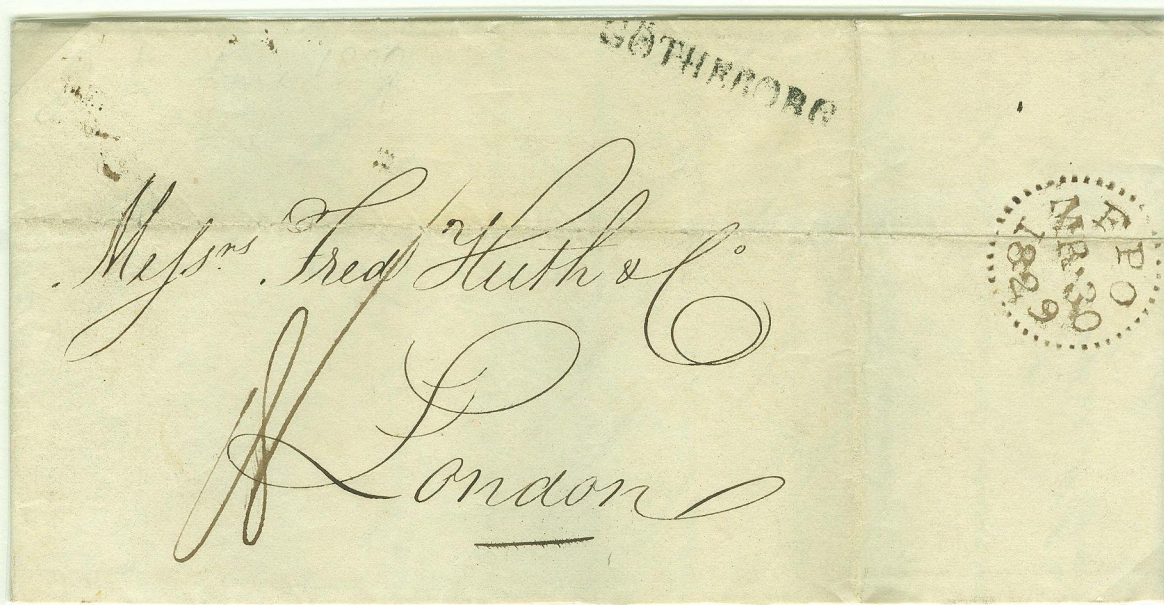 GÖTHEBORG
Messrs. Fredk Huth & Co
London
FPO
MR. 30
1829